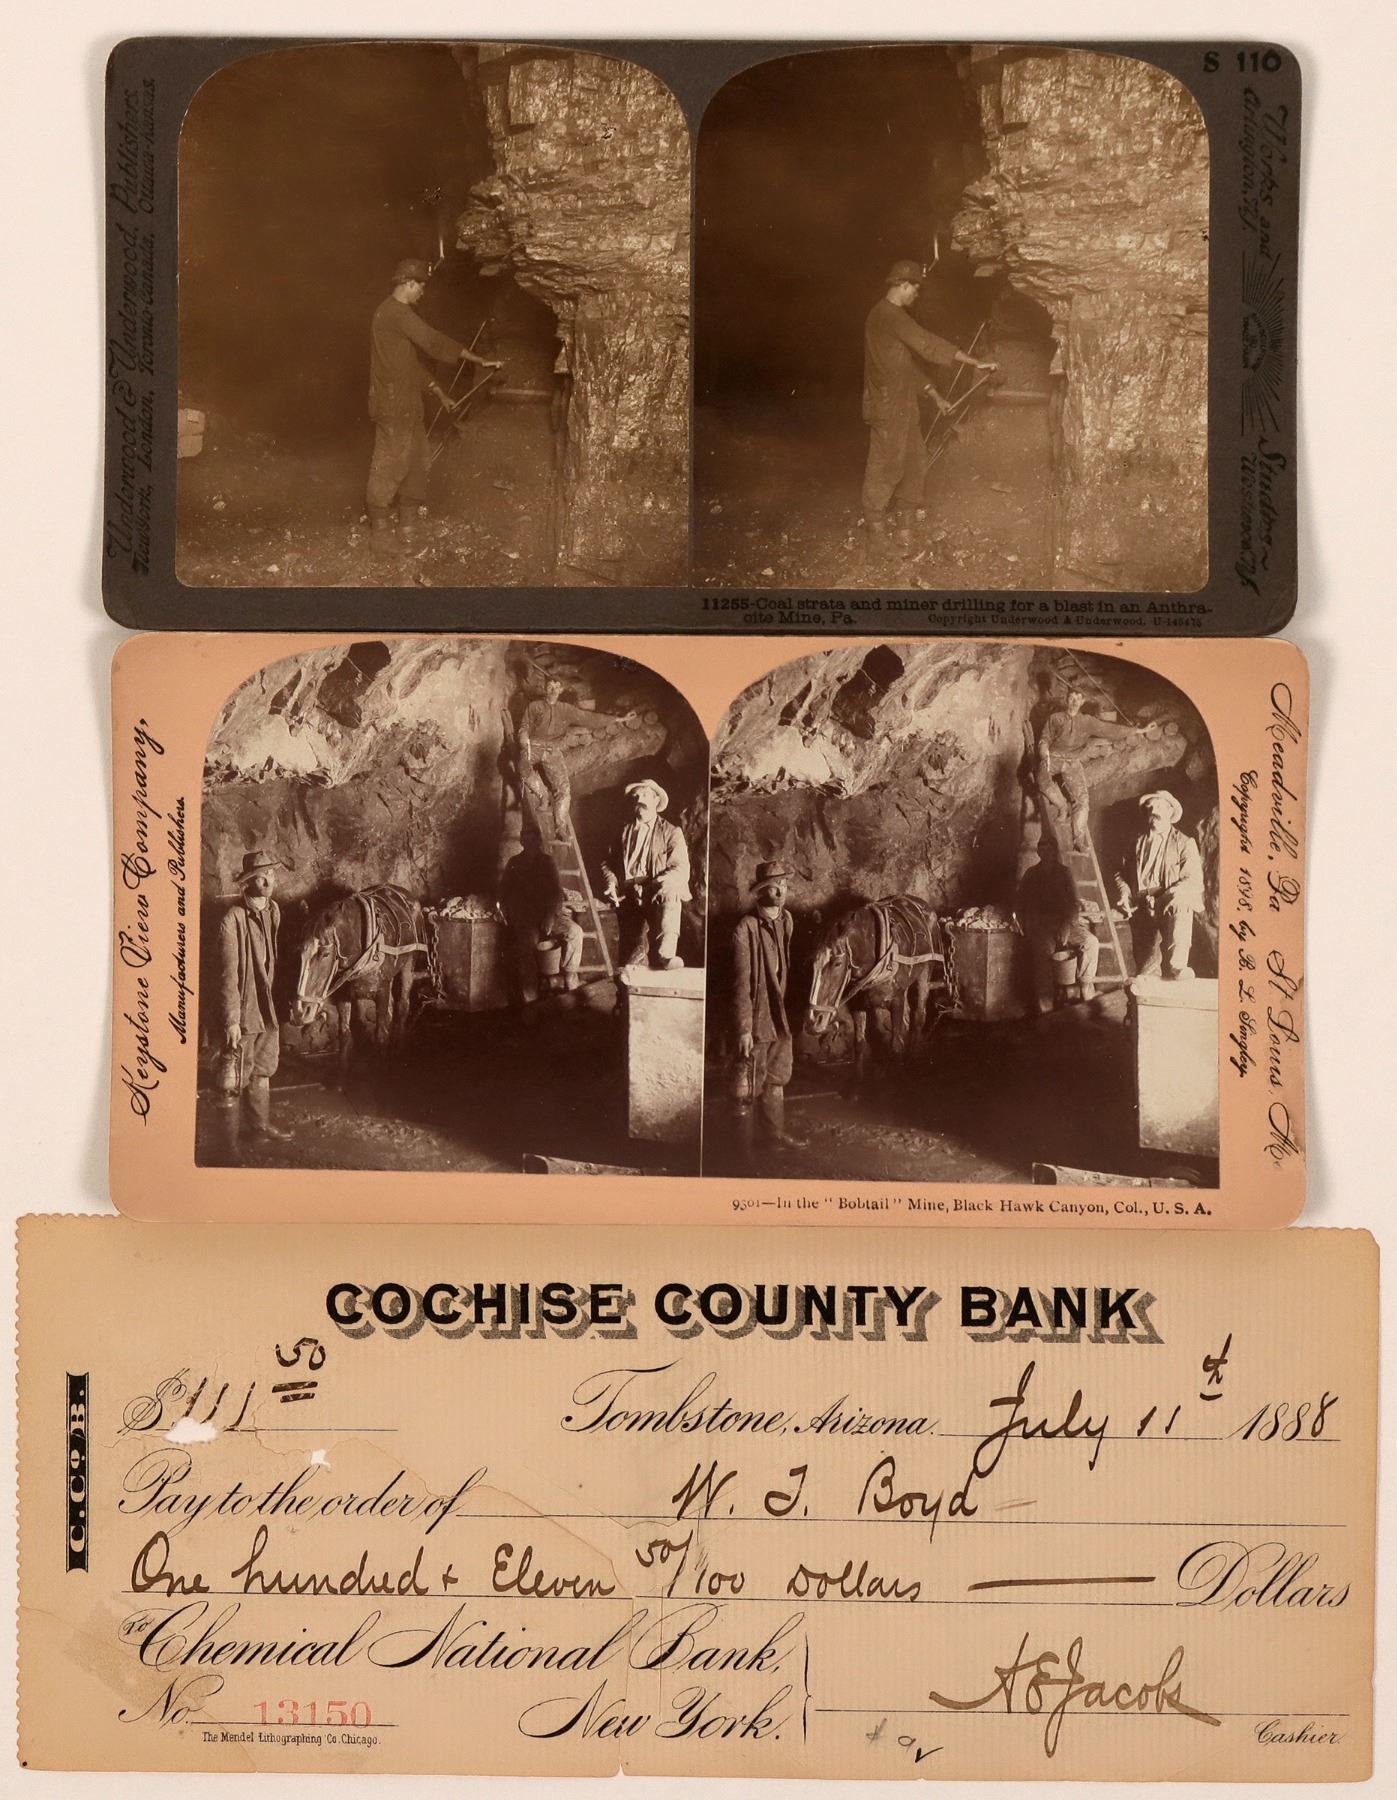 S 110
Underwood & Underwood, Publishers.
New York, London, Toronto-Canada, Ottawa-Kansas.
Works and Studios~
Arlington, N.J. Westwood, N.J.
11255-Coal strata and miner drilling for a blast in an Anthra-
cite Mine, Pa. Copyright Underwood & Underwood. U-145475
Keystone View Company,
Manufacturers and Publishers.
Meadville, Pa St. Louis, Mo
Copyright 1898, by B. L. Singley.
9501—In the "Bobtail" Mine, Black Hawk Canyon, Col., U. S. A.
COCHISE COUNTY BANK
C.CO.B.
$111 50
Tombstone, Arizona. July 11th 1888
Pay to the order of W. T. Boyd
One hundred + Eleven 50/100 Dollars — Dollars
To Chemical National Bank,
No. 13150 New York.
A E Jacobs
The Mendel Lithographing Co. Chicago.
Cashier.